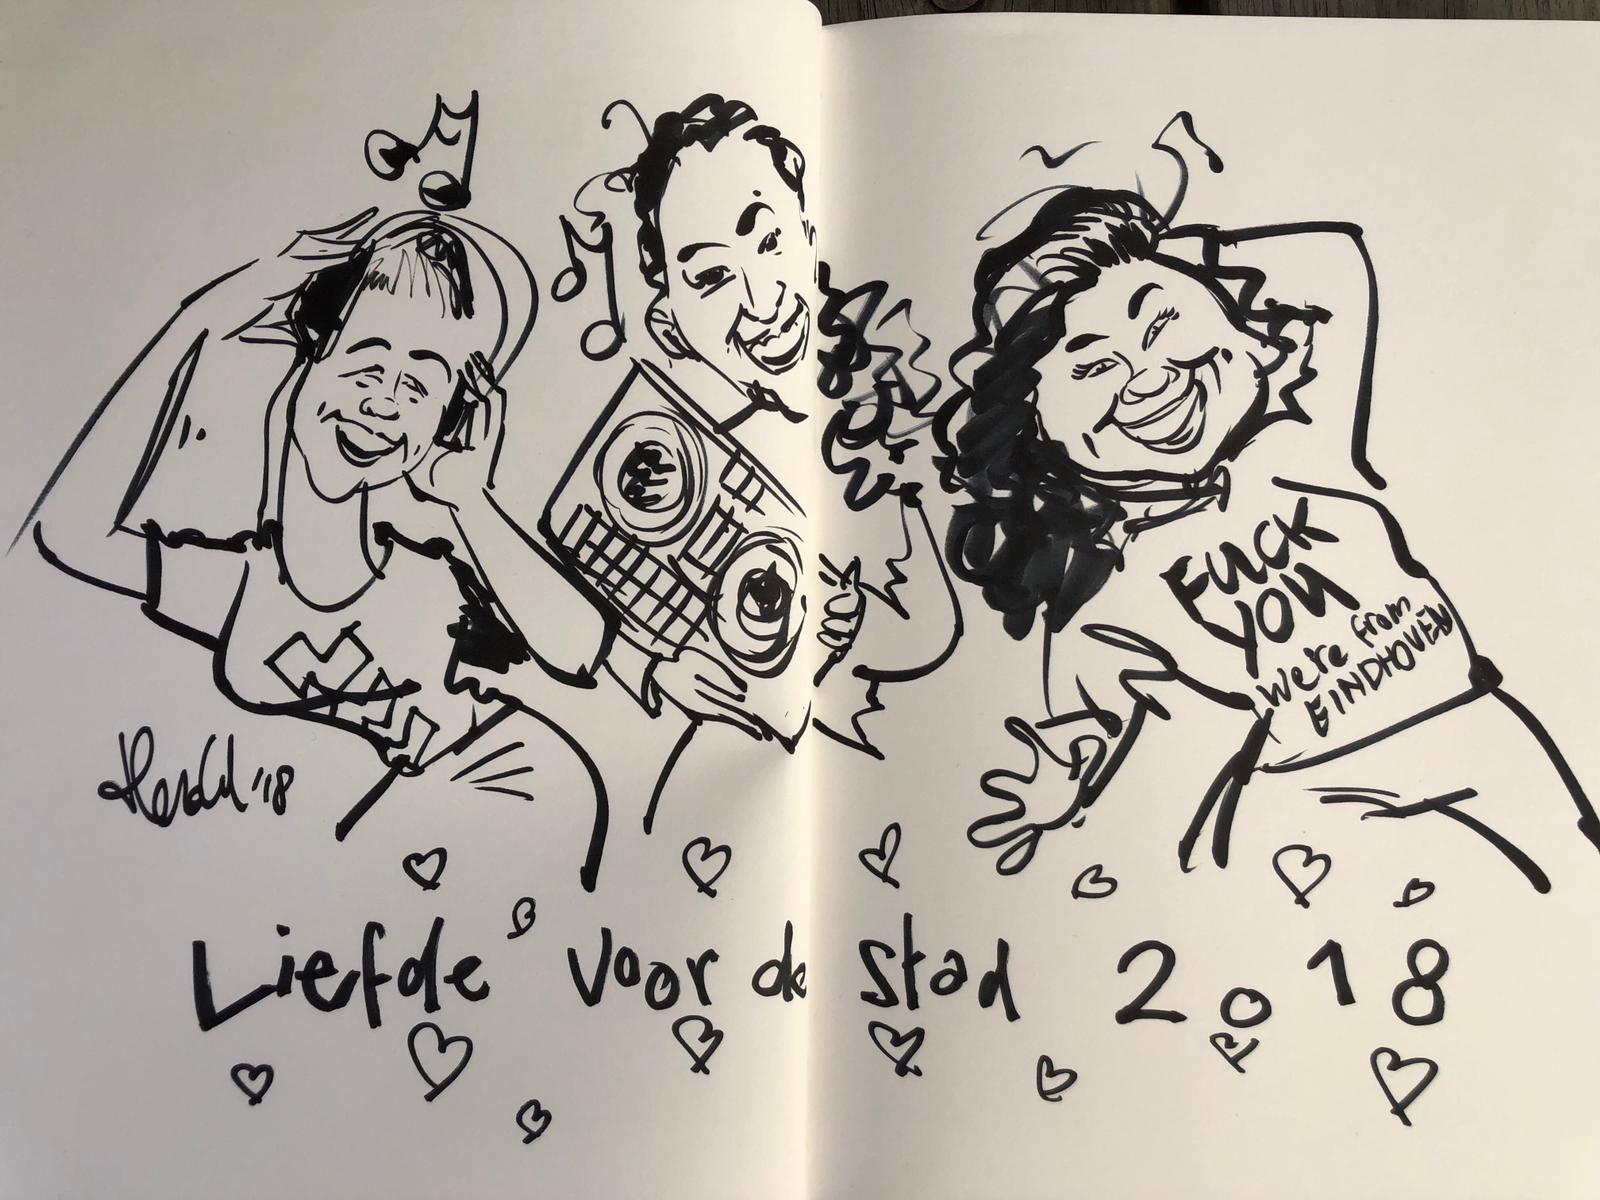 FUCK
YOU
We're from
EINDHOVEN
'18
Liefde voor de stad 2018